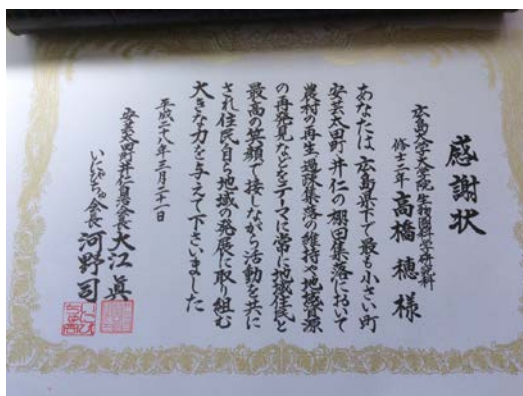 感謝状
広島大学大学院 生物圏科学研究科
修士二年 高橋 穂 様
あなたは 広島県下で最も小さい町
安芸太田町 井仁の棚田集落において
農村の再生 過疎集落の維持や地域資源
の再発見などをテーマに常に地域住民と
最高の笑顔で接しながら活動を共に
され住民自ら地域の発展に取り組む
大きな力を与えて下さいました
平成二八年三月二一日
安芸太田町井仁自治会会長 大江 眞
いにぴちゅ会 会長 河野 司